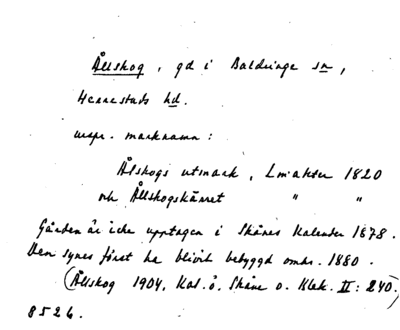 Ållskog, gd i Baldringe sn,
Herrestads hd.
urspr. marknamn:
Ålskogs utmark, Lm:akter 1820
och Ållskogskärret " "
Gården är icke upptagen i Skånes Kalender 1878.
Den synes först ha blivit bebyggd omkr. 1880.
(Ållskog 1904, Kat. ö. Skåne o. Blek. II: 240.)
8526.